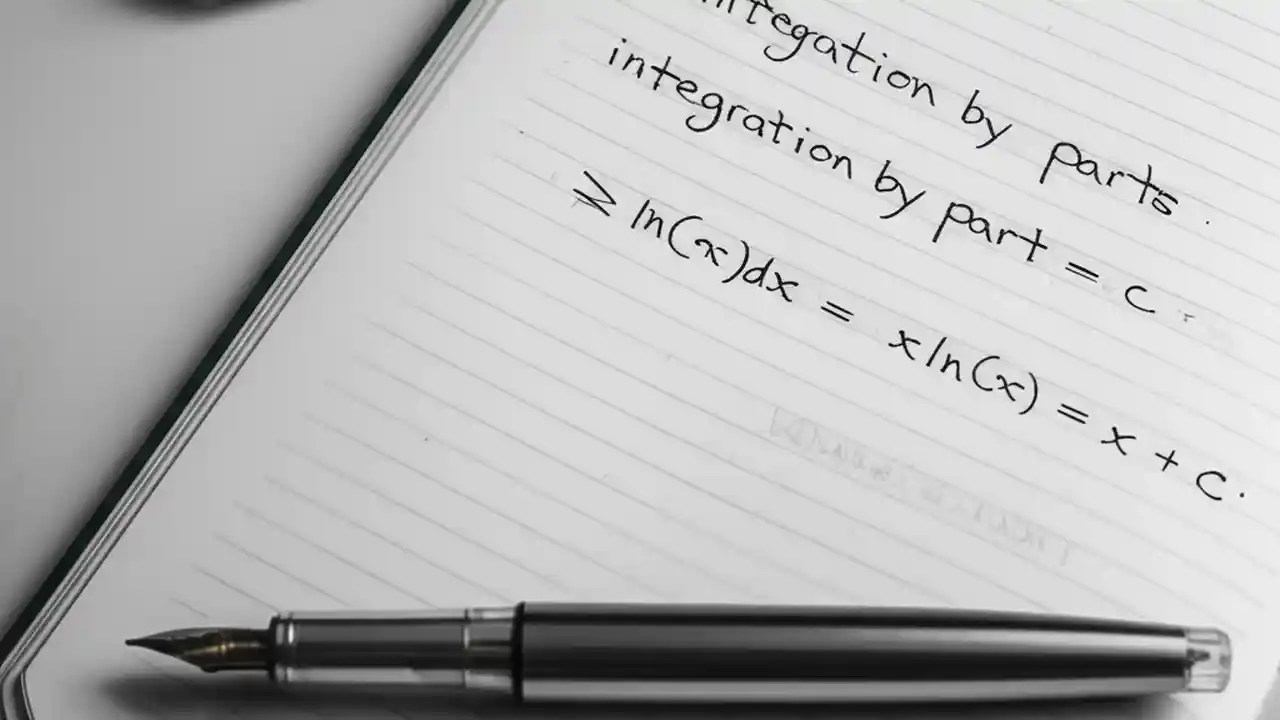 integation by parts.
integration by part = c.
≥ ln(x)dx = x ln(x) = x + c.